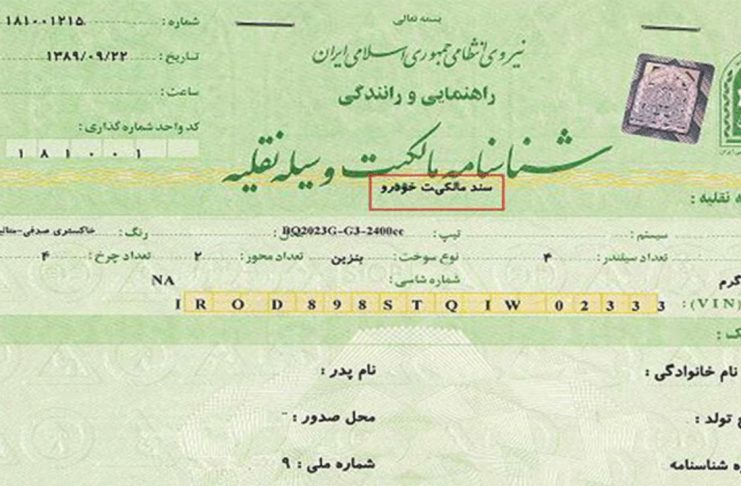 بسمه تعالی
شماره: ۱۸۱۰۰۱۲۱۵
نیروی انتظامی جمهوری اسلامی ایران
تاریخ: ۱۳۸۹/۰۹/۲۲
راهنمایی و رانندگی
ساعت:
کد واحد شماره گذاری:
۱ ۸ ۱ ۰ ۰ ۱
شناسنامه مالکیت وسیله نقلیه
سند مالکیت خودرو
نقلیه:
سیستم: تیپ: BQ2023G-G3-2400cc رنگ: خاکستری صدفی-متالی
تعداد سیلندر: ۴ نوع سوخت: بنزین تعداد محور: ۲ تعداد چرخ: ۴
شماره شاسی: NA
(VIN): IROD898STQIW02333
نام خانوادگی: نام پدر:
تولد: محل صدور: -
شناسنامه شماره ملی: ۹